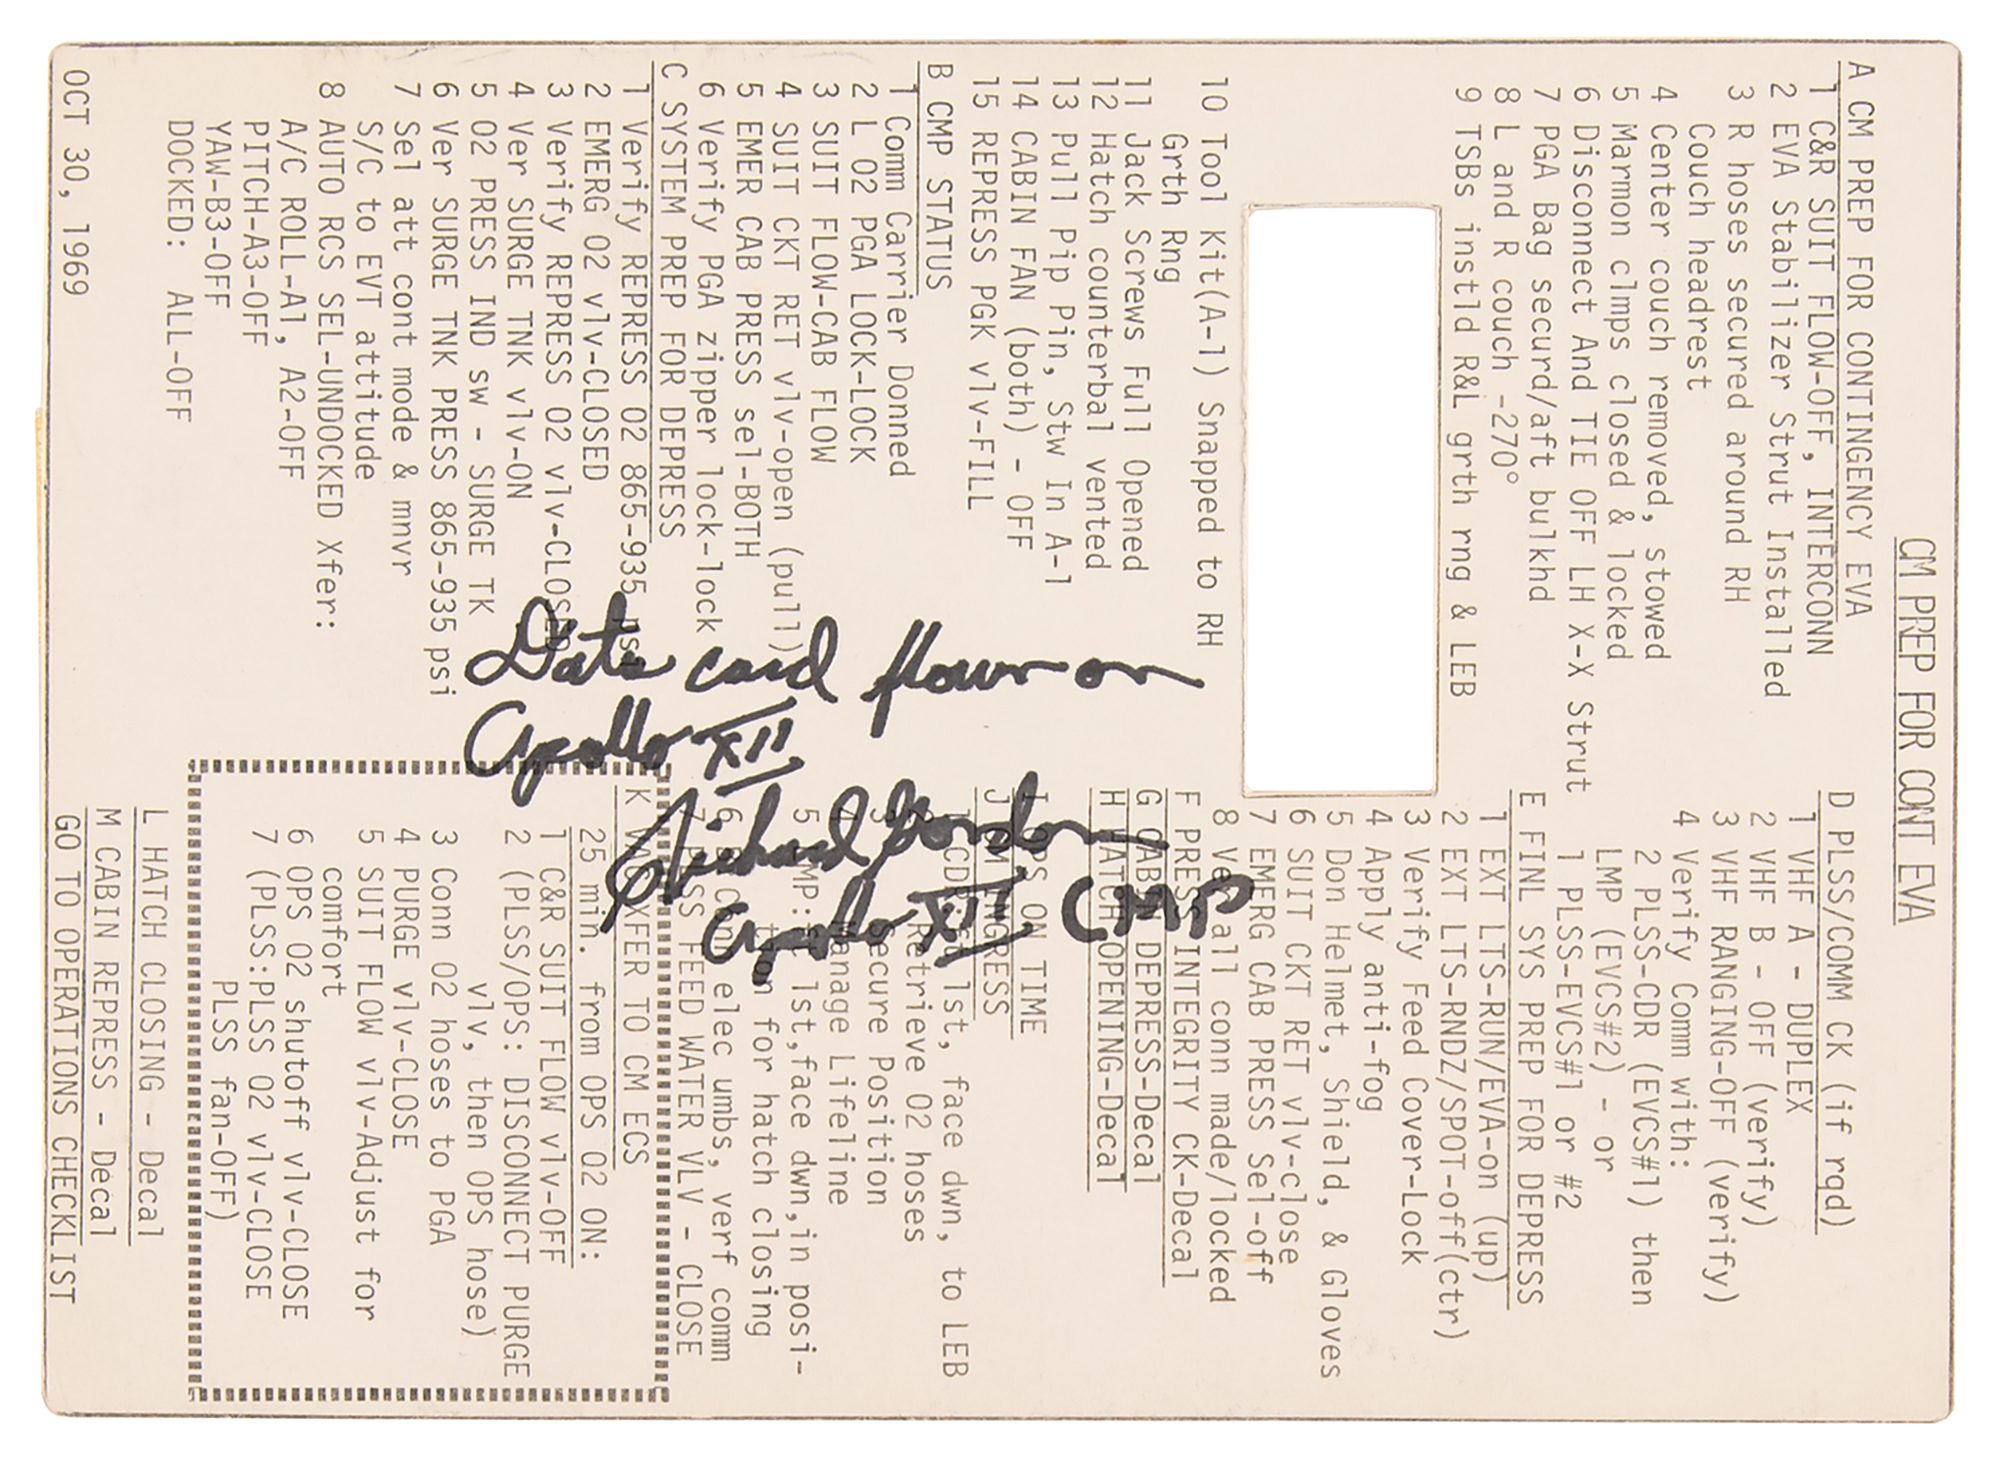 CM PREP FOR CONT EVA
A CM PREP FOR CONTINGENCY EVA
1 C&R SUIT FLOW-OFF, INTERCONN
2 EVA Stabilizer Strut Installed
3 R hoses secured around RH
Couch headrest
4 Center couch removed, stowed
5 Marmon clmps closed & locked
6 Disconnect And TIE OFF LH X-X Strut
7 PGA Bag securd/aft bulkhd
8 L and R couch -270°
9 TSBs instld R&L grth rng & LEB
10 Tool Kit(A-1) Snapped to RH
Grth Rng
11 Jack Screws Full Opened
12 Hatch counterbal vented
13 Pull Pip Pin, Stw In A-1
14 CABIN FAN (both) - OFF
15 REPRESS PGK vlv-FILL
B CMP STATUS
1 Comm Carrier Donned
2 L O2 PGA LOCK-LOCK
3 SUIT FLOW-CAB FLOW
4 SUIT CKT RET vlv-open (pull)
5 EMER CAB PRESS sel-BOTH
6 Verify PGA zipper lock-lock
C SYSTEM PREP FOR DEPRESS
1 Verify REPRESS O2 865-935 psi
2 EMERG O2 vlv-CLOSED
3 Verify REPRESS O2 vlv-CLOSED
4 Ver SURGE TNK vlv-ON
5 O2 PRESS IND sw - SURGE TK
6 Ver SURGE TNK PRESS 865-935 psi
7 Sel att cont mode & mnvr
S/C to EVT attitude
8 AUTO RCS SEL-UNDOCKED Xfer:
A/C ROLL-A1, A2-OFF
PITCH-A3-OFF
YAW-B3-OFF
DOCKED: ALL-OFF
OCT 30, 1969
D PLSS/COMM CK (if rqd)
1 VHF A - DUPLEX
2 VHF B - OFF (verify)
3 VHF RANGING-OFF (verify)
4 Verify Comm with:
2 PLSS-CDR (EVCS#1) then
LMP (EVCS#2) - or
1 PLSS-EVCS#1 or #2
E FINL SYS PREP FOR DEPRESS
1 EXT LTS-RUN/EVA-on (up)
2 EXT LTS-RNDZ/SPOT-off(ctr)
3 Verify Feed Cover-Lock
4 Apply anti-fog
5 Don Helmet, Shield, & Gloves
6 SUIT CKT RET vlv-close
7 EMERG CAB PRESS Sel-off
8 Ver all conn made/locked
F PRESS INTEGRITY CK-Decal
G CABIN DEPRESS-Decal
H HATCH OPENING-Decal
I OPS ON TIME
J CM INGRESS
1 CDR: 1st, face dwn, to LEB
2 Retrieve O2 hoses
3 Secure Position
4 Manage Lifeline
5 1st,face dwn,in posi-
tion for hatch closing
6 elec umbs, verf comm
7 PLSS FEED WATER VLV - CLOSE
K XFER TO CM ECS
25 min. from OPS O2 ON:
1 C&R SUIT FLOW vlv-OFF
2 (PLSS/OPS: DISCONNECT PURGE
vlv, then OPS hose)
3 Conn O2 hoses to PGA
4 PURGE vlv-CLOSE
5 SUIT FLOW vlv-Adjust for
comfort
6 OPS O2 shutoff vlv-CLOSE
7 (PLSS:PLSS O2 vlv-CLOSE
PLSS fan-OFF)
L HATCH CLOSING - Decal
M CABIN REPRESS - Decal
GO TO OPERATIONS CHECKLIST
Data card flown on
Apollo XII
Richard Gordon
Apollo XII CMP